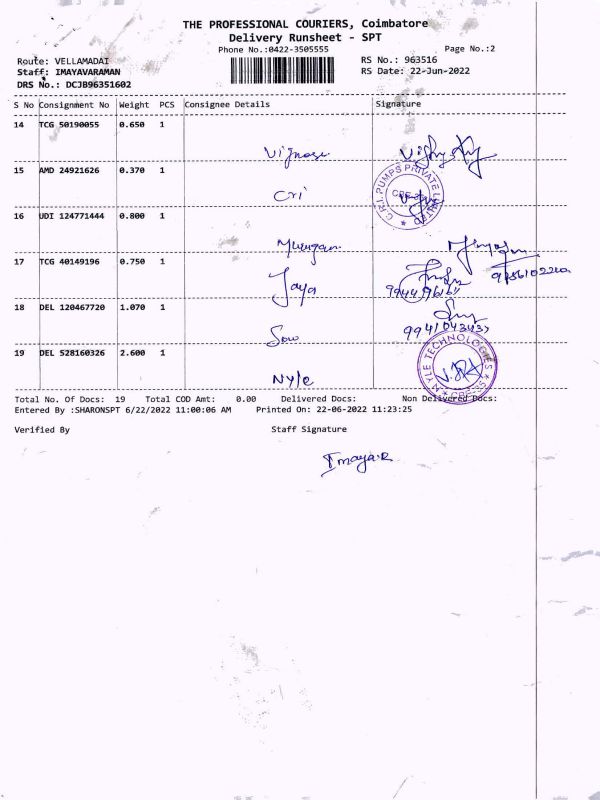 THE PROFESSIONAL COURIERS, Coimbatore
Delivery Runsheet - SPT
Phone No.:0422-3505555
Page No.:2
Route: VELLAMADAI
RS No.: 963516
Staff: IMAYAVARAMAN
RS Date: 22-Jun-2022
DRS No.: DCJB96351602
S No Consignment No Weight PCS Consignee Details Signature
14 TCG 50190055 0.650 1
15 AMD 24921626 0.370 1
Cri
C.R.I. PUMPS PRIVATE LIMITED
16 UDI 124771444 0.800 1
Murugan
17 TCG 40149196 0.750 1
Jaya
18 DEL 120467720 1.070 1
9941043437
Sow
19 DEL 528160326 2.600 1
Nyle
NYLE TECHNOLOGIES
Total No. Of Docs: 19 Total COD Amt: 0.00 Delivered Docs: Non Delivered Docs:
Entered By :SHARONSPT 6/22/2022 11:00:06 AM Printed On: 22-06-2022 11:23:25
Verified By Staff Signature
ImayaR